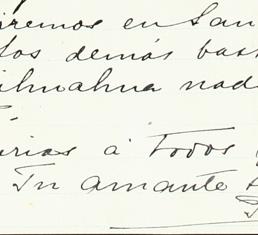 iremos en San
los demás bast
ihuahua nad
rias à todos
Tu amante